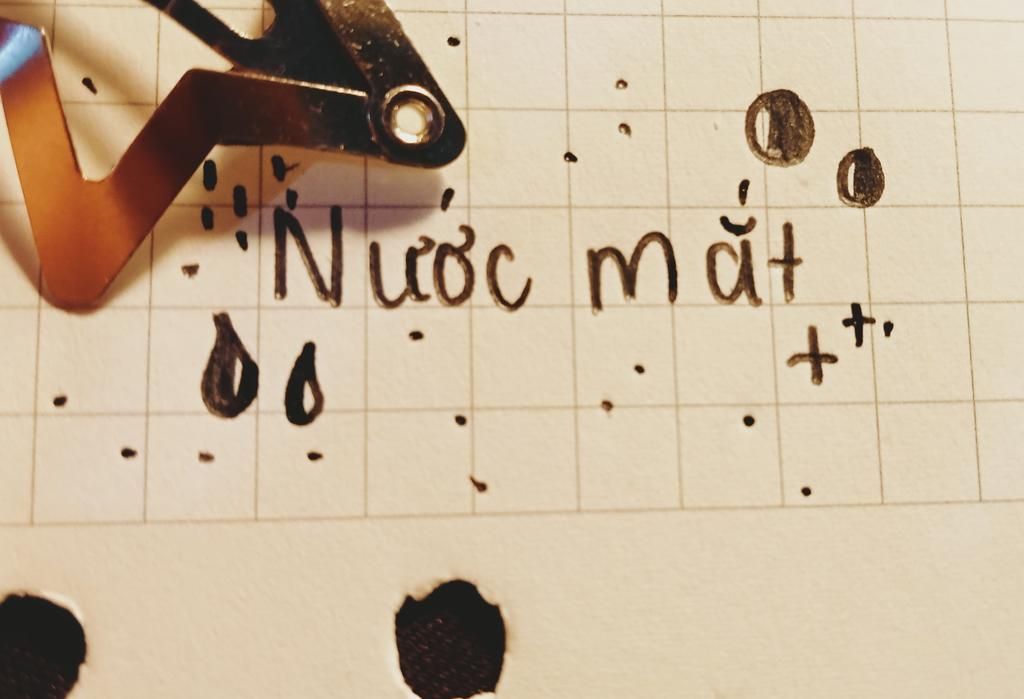 Nước mắt